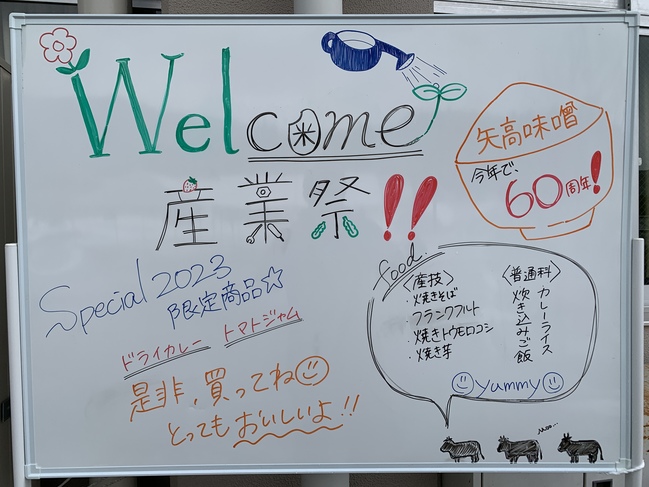 Welcome
産業祭!!
矢高味噌
今年で、
60周年!
Special 2023
限定商品☆
ドライカレー トマトジャム
是非、買ってね
とってもおいしいよ!!
food
〈産技〉
・焼きそば
・フランクフルト
・焼きトウモロコシ
・焼き芋
〈普通科〉
カレーライス
炊き込みご飯
yummy
moo...